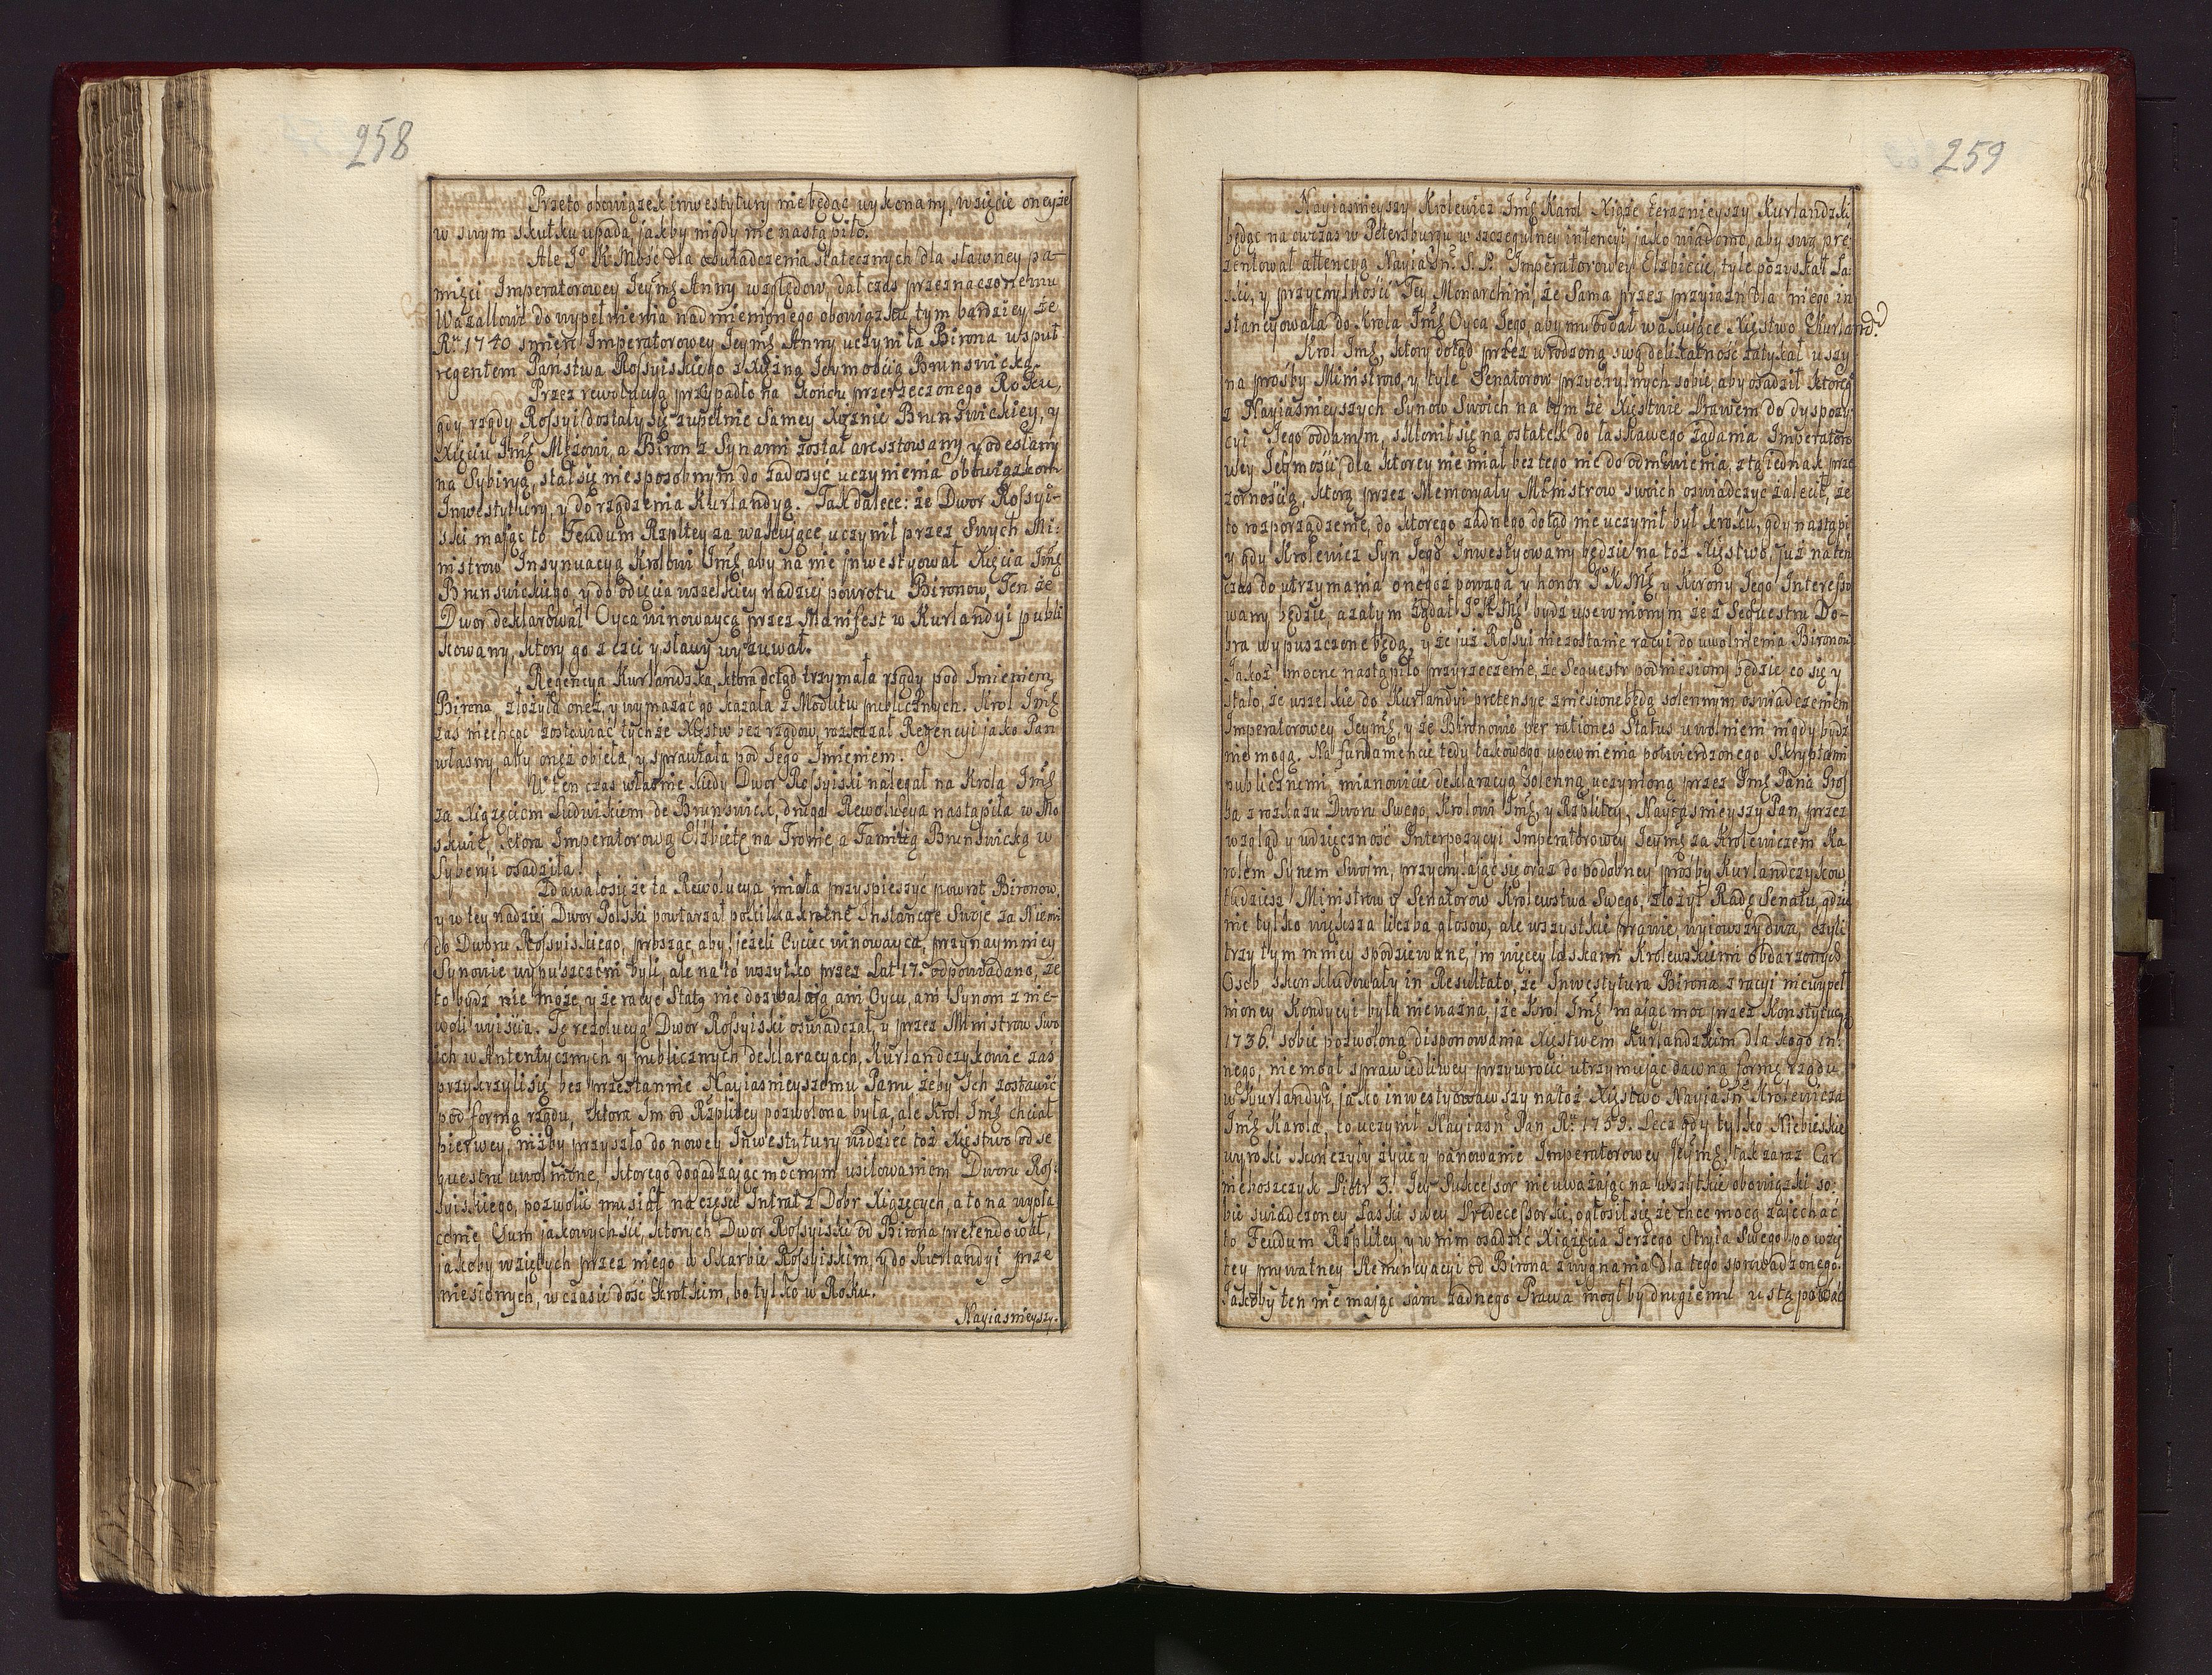 258
Przeto obowiązek inwestytury nie będąc wykonany, wzięcie oneyże
w swym skutku upada, jakby nigdy nie nastąpiło.
Ale Jo K Mość dla oświadczenia statecznych dla sławney pa-
mięci Imperatorowey Jeymć Anny względow, dał czas przeznaczonemu
Wazallowi do wypełnienia nadmienionego obowiązku, tym bardziey że
Ru 1740 smierć Imperatorowey Jeymć Anny uczyniła Birona wspuł
regentem Panstwa Rossyiskiego z Xiężną Jeymością Brunswicką.
Przez rewolucyą przypadło na końcu przerzeczonego Roku,
gdy rządy Rossyi dostały się zupełnie Samey Xiężnie Brunswickiey, y
Xięciu Imć Mężowi, a Biron z Synami został aresztowany, y odesłany
na Sybiryą, stał się niesposobnym do zadosyć uczynienia obowiązkom
Inwestytury, y do rządzenia Kurlandyą. Tak dalece: że Dwor Rossyi-
ski mając to Feudum Rzpltey za wakujące, uczynił przez Swych Mi-
nistrow Insynuacyą Krolowi Imć, aby na nie inwestyował Xięcia Imć
Brunswickiego y do odjęcia wszelkiey nadziej powrotu Bironow, Ten że
Dwor deklarował Oyca winowaycą przez Manifest w Kurlandyi publi
kowany, ktory go z czci y sławy wyzuwał.
Regencya Kurlandzka, ktora dotąd trzymała rządy pod Imieniem
Birona, złożyła oneż, y wymazać go kazała z Modlitw publicznych. Krol Imć
zaś niechcąc zostawiać tychże Xięstw bez rządow, rozkazał Regencyi jako Pan
własny, aby oneż objęła, y sprawiała pod Jego Imieniem.
W ten czas własnie kiedy Dwor Rossyiski nalegał na Krola Imć
za Xiążęciem Ludwikiem de Brunswick, druga Rewolucya nastąpiła w Mo
skwie, ktora Imperatorową Elżbietę na Tronie, a Familią Brunswicką w
Syberyi osadziła.
Zdawało się że ta Rewolucya miała przyspieszyć powrot Bironow,
y w tey nadziej Dwor Polski powtarzał po kilkakrotne Instancye Swoje za Niemi
do Dworu Rossyiskiego, prosząc, aby, jeżeli Oyciec winowayca, przynaymniey
Synowie wypuszczeni byli, ale na to wszytko przez Lat 17. odpowiadano, że
to bydź nie może, y że racye Statu nie dozwalają, ani Oycu, ani Synom z nie-
woli wyiścia. Tę rezolucyą Dwor Rossyiski oswiadczał, y przez Ministrow Swo
ich w Autentycznych y publicznych deklaracyach, Kurlandczykowie zaś
przykrzyli się bez przestannie Nayiasnieyszemu Panu żeby Ich zostawić
pod formą rządu, ktora Im od Rzpltey pozwolona była, ale Krol Imć chciał
pierwey, niżby przyszło do nowey Inwestytury widzieć toż Xięstwo od se
questru uwolnione, ktorego dogadzając mocnym usiłowaniom Dworu Ros-
syiskiego, pozwolić musiał na częśći Intrat z Dobr Xiążęcych, a to na wypła
cenie Sum jakowychści, ktorych Dwor Rossyiski od Birona pretendował,
jakoby wziętych przez niego w Skarbie Rossyiskim, y do Kurlandyi prze
niesionych, w czasie dość krotkim, bo tylko w Roku.
Nayiasnieyszy.
259
Nayiasnieyszy Krolewicz Imć Karol Xiąże terazniejszy Kurlandzki
będąc na owczas w Petersburgu w szczegulney intencyi, jako wiadomo, aby swą pre
zentował attencyą Nayiaśn. S. P. Imperatorowey Elżbiecie, tyle pozyskał Ła
ski, y przychylności Tey Monarchini, że Sama przez przyiaźń dla niego in
stancyowała do Krola Imć Oyca Jego, aby mu oddał wakujące Xięstwo Kurland.
Krol Imć, ktory dotąd przez wrodzoną swą delikatność zatykał uszy
na prośby Ministrow, y tyle Senatorow przychylnych sobie, aby osadził ktorego
z Nayiasnieyszych Synow Swoich na tym że Xięstwie Prawem do dyspozy
cyi Jego oddanym, skłonił się na ostatek do łaskawego żądania Imperatoro
wey Jeymości, dla ktorey nie miał bez tego nic do odmowienia, z tą jednak prze
zornością, ktorą przez Memoryały Ministrow swoich oswiadczyć zalecił, że
to rozporządzenie, do ktorego żadnego dotąd nie uczynił był kroku, gdy nastąpi
y gdy Krolewicz Syn Jego Inwestyowany będzie na toż Xięstwo, już na ten
czas do utrzymania onegoż powaga y honor Jo K Mć, y Korony Jego Interesso
wany będzie, a zatym żądał Jo K Mć bydź upewnionym że z Sequestru Do-
bra wypuszczone będą, y że już Rossyi niezostanie racyi do uwolnienia Bironow
Jakoż mocne nastąpiło przyrzeczenie, że Sequestr podniesiony będzie co się y
stało, że wszelkie do Kurlandyi pretensye zniesione będą solennym oswiadczeniem
Imperatorowey Jeymć, y że Bironowie per rationes Status uwolnieni nigdy bydź
nie mogą. Na fundamencie tedy takowego upewnienia potwierdzonego Skryptami
publicznemi, mianowicie deklaracyą Solenną, uczynioną przez Imć Pana Gros
sa z rozkazu Dworu Swego, Krolowi Imć, y Rzpltey, Nayiasnieyszy Pan, przez
wzgląd y wdzięczność Interpozycyi Imperatorowey Jeymć za Krolewiczem Ka
rolem Synem Swoim, przychylając się oraz do podobney prośby Kurlandczykow
tudziesz Ministrow y Senatorow Krolewstwa Swego, złożył Radę Senatu, gdzie
nie tylko większa liczba głosow, ale wszystkie prawie, wyiowszy dwa, czyli
trzy tym mniey spodziewane, im więcey łaskami Krolewskiemi obdarzonych
Osob skonkludowały in Resultato, że Inwestytura Birona z racyi niewypeł
nioney Kondycyi była nieważna, że Krol Imć mając moc przez Konstytucyą
1736. sobie pozwoloną disponowania Xięstwem Kurlandzkim dla kogo in-
nego, nie mogł sprawiedliwey przywrocić utrzymując dawną formę rządu
w Kurlandyi, jako inwestyowawszy na toż Xięstwo Nayiaśn Krolewicza
Imć Karola, to uczynił Nayiaśn Pan Ru 1759. Lecz gdy tylko Niebieskie
wyroki skończyły życie y panowanie Imperatorowey Jeymć, tak zaraz Car
nieboszczyk Piotr 3. Jey Sukcessor nieuważając na wszytkie obowiązki so-
bie swiadczoney Łaski swey Predecessorki, ogłosił się że chce mocą zajechać
to Feudum Rzpltey, y w nim osadzić Xiążęcia Jerzego Stryia Swego po wzię
tey prywatney Renuncyacyi od Birona z wygnania dla tego sprowadzonego.
Jakoby ten nie mając sam żadnego Prawa mogł by drugiemu ustąpować